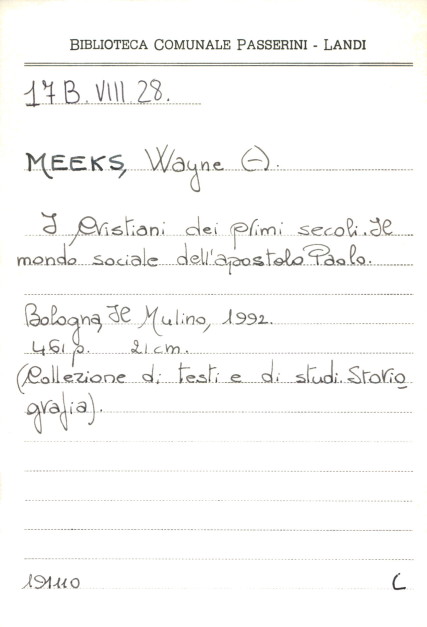 BIBLIOTECA COMUNALE PASSERINI - LANDI
17 B. VIII. 28.
MEEKS, Wayne (-).
I Cristiani dei primi secoli. Il
mondo sociale dell'apostolo Paolo.
Bologna, Il Mulino, 1992.
461 p. 21 cm.
(Collezione di testi e di studi. Storio
grafia).
191110 C